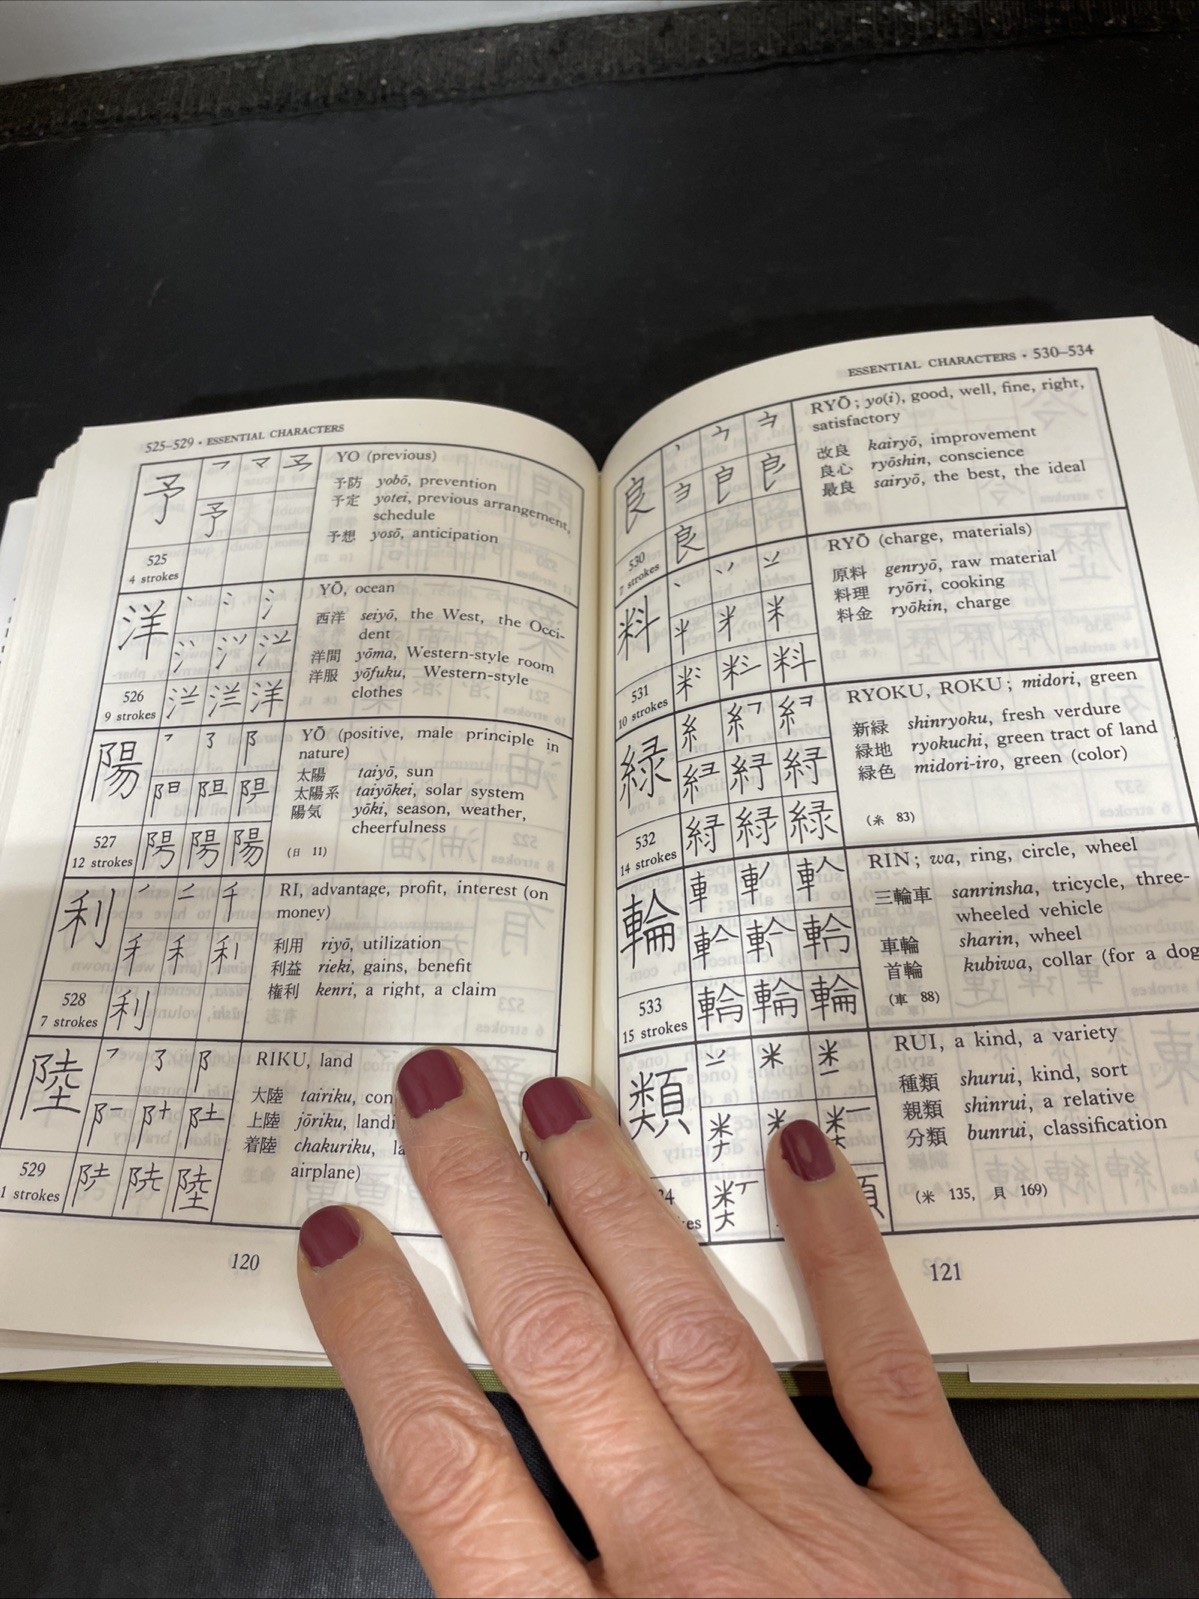 525–529 • ESSENTIAL CHARACTERS
予
525
4 strokes
YO (previous)
予防 yobō, prevention
予定 yotei, previous arrangement,
schedule
予想 yosō, anticipation
洋
526
9 strokes
YŌ, ocean
西洋 seiyō, the West, the Occi-
dent
洋間 yōma, Western-style room
洋服 yōfuku, Western-style
clothes
陽
527
12 strokes
YŌ (positive, male principle in
nature)
太陽 taiyō, sun
太陽系 taiyōkei, solar system
陽気 yōki, season, weather,
cheerfulness
(日 11)
利
528
7 strokes
RI, advantage, profit, interest (on
money)
利用 riyō, utilization
利益 rieki, gains, benefit
権利 kenri, a right, a claim
陸
529
1 strokes
RIKU, land
大陸 tairiku, con
上陸 jōriku, landi
着陸 chakuriku, la
airplane)
120
ESSENTIAL CHARACTERS • 530–534
良
530
7 strokes
RYŌ; yo(i), good, well, fine, right,
satisfactory
改良 kairyō, improvement
良心 ryōshin, conscience
最良 sairyō, the best, the ideal
料
531
10 strokes
RYŌ (charge, materials)
原料 genryō, raw material
料理 ryōri, cooking
料金 ryōkin, charge
緑
532
14 strokes
RYOKU, ROKU; midori, green
新緑 shinryoku, fresh verdure
緑地 ryokuchi, green tract of land
緑色 midori-iro, green (color)
(糸 83)
輪
533
15 strokes
RIN; wa, ring, circle, wheel
三輪車 sanrinsha, tricycle, three-
wheeled vehicle
車輪 sharin, wheel
首輪 kubiwa, collar (for a dog
(車 88)
類
RUI, a kind, a variety
種類 shurui, kind, sort
親類 shinrui, a relative
分類 bunrui, classification
(米 135, 貝 169)
121